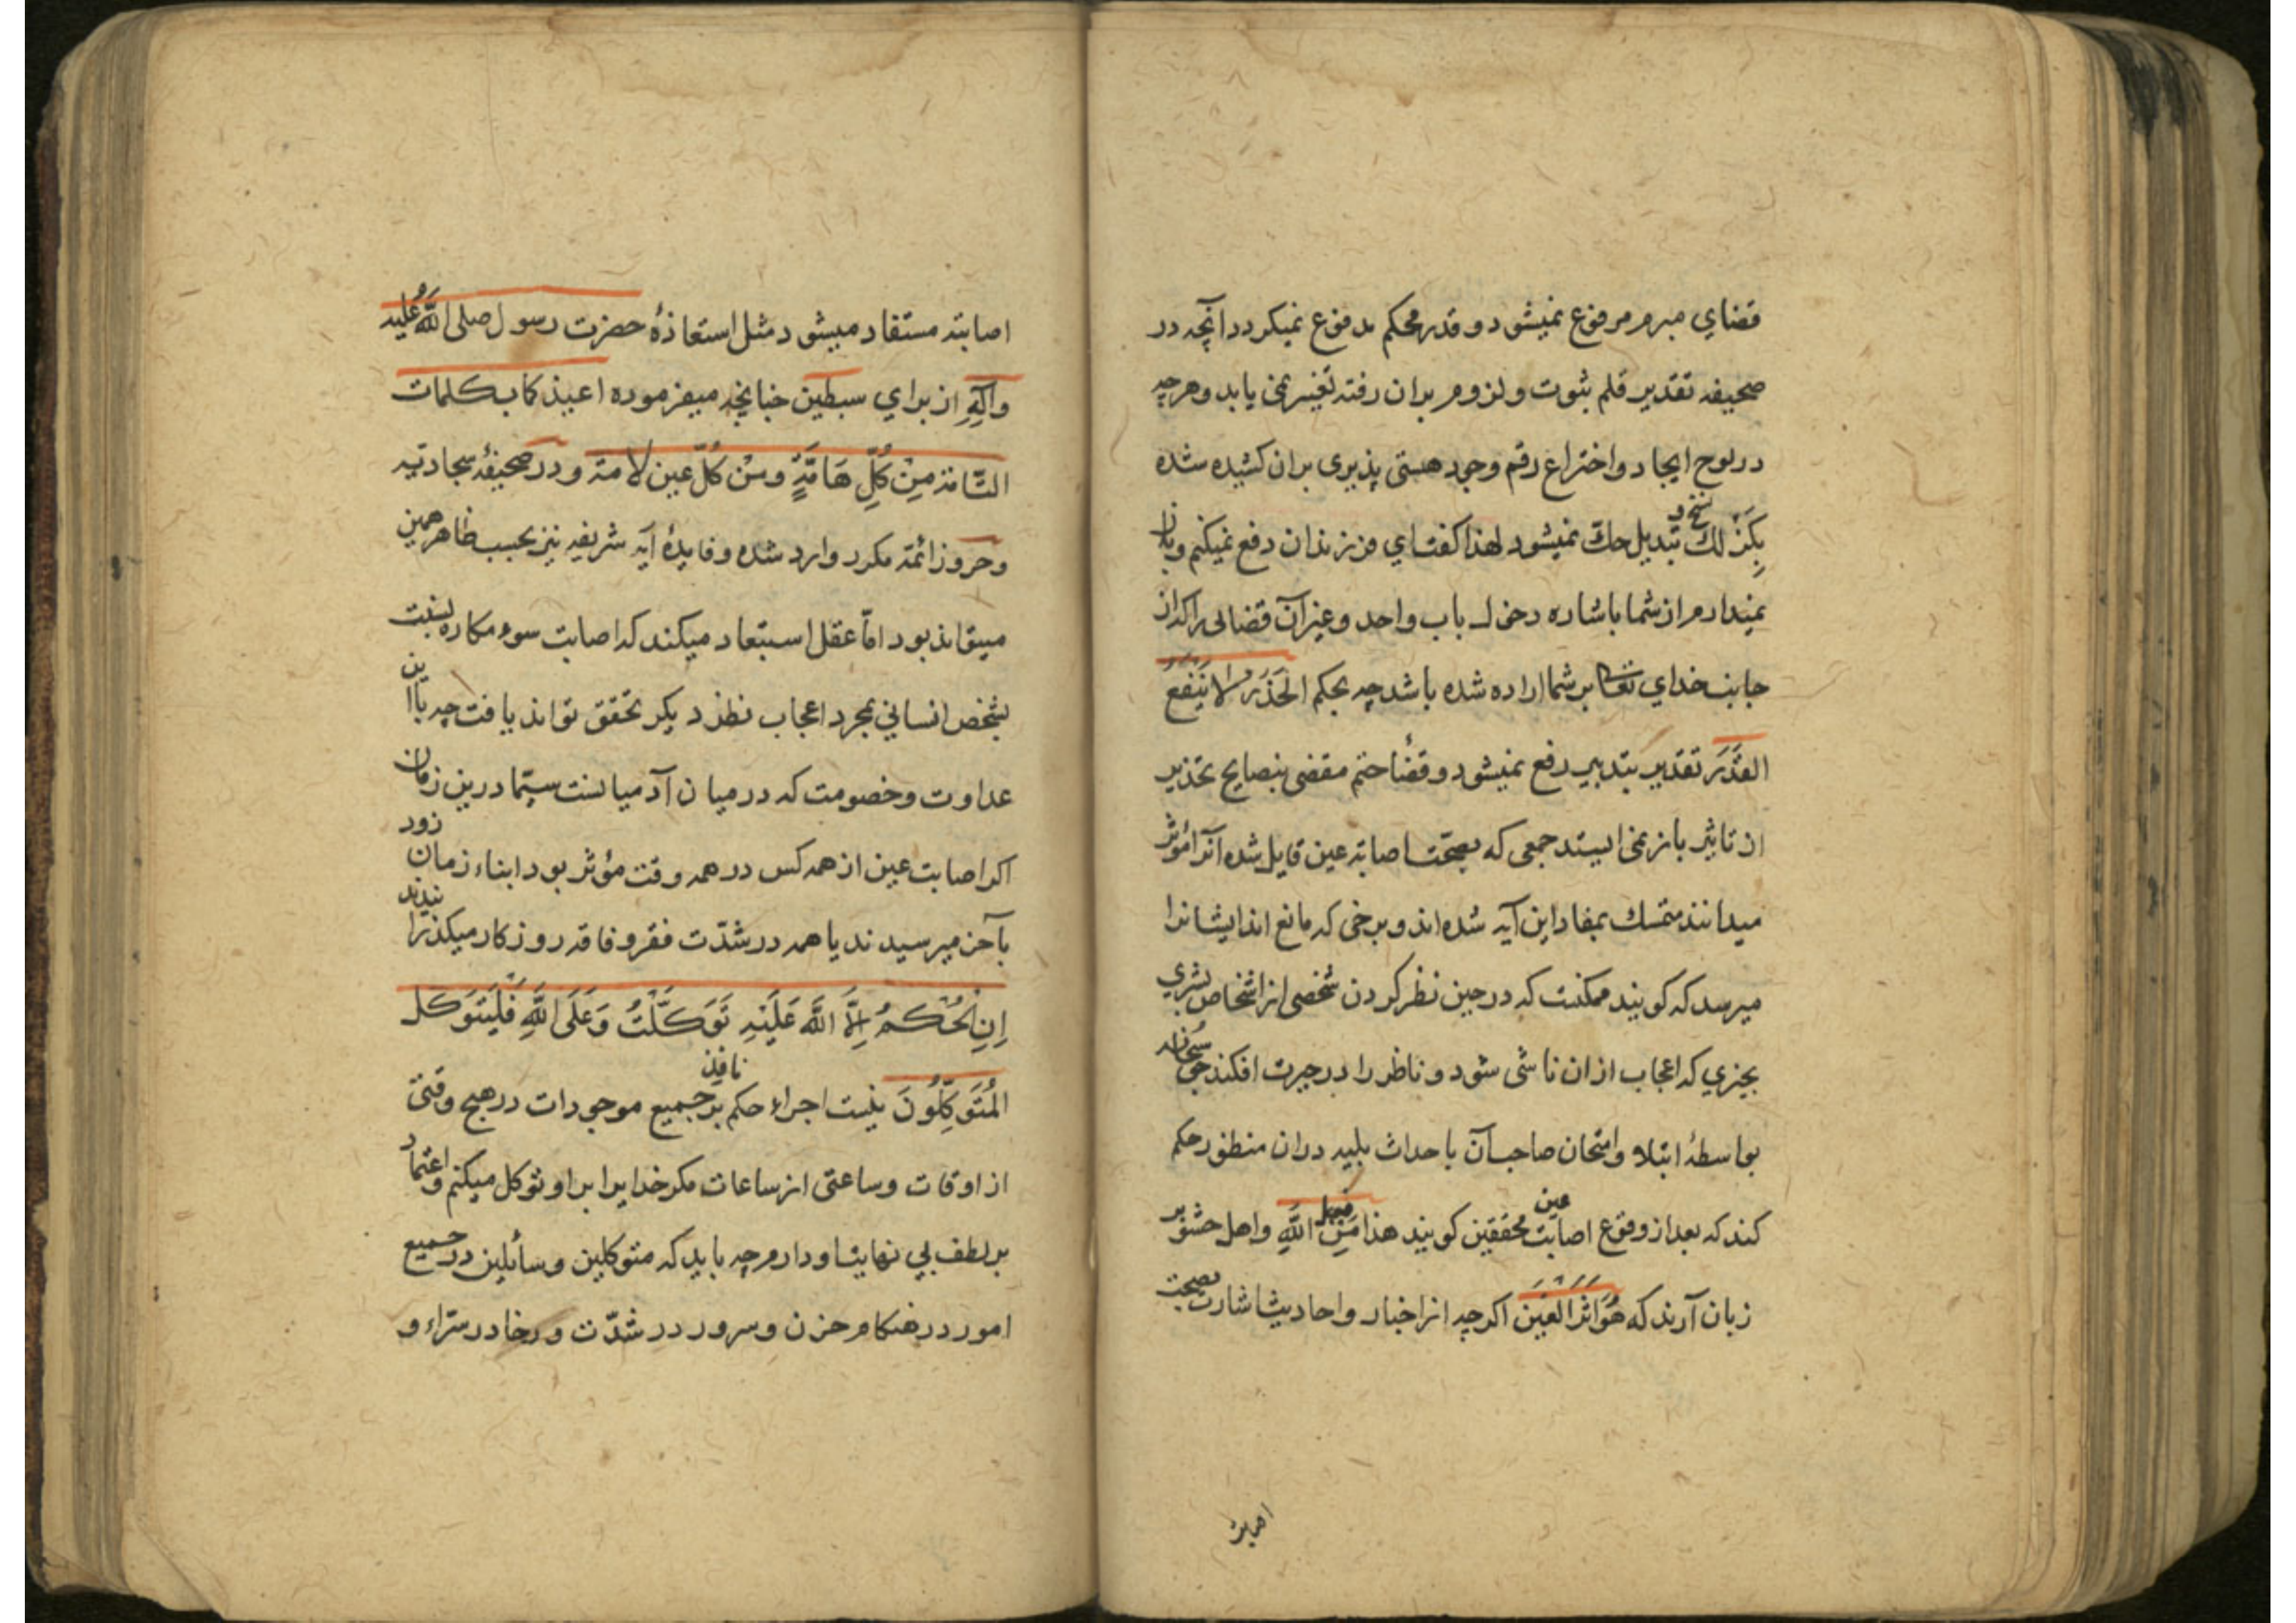 قضاي مبرم مرفوع نميشود و قدر محكم مدفوع نميكردد آنچه در
صحيفه تقدير قلم ثبوت و لزوم بران رفته تغيير نمى يابد و هرچه
در لوح ايجاد و اختراع رقم وجود هستى پذيرى بران كشيده شده
بِكَزْلك نسخ و تبديل حكّ نميشود لهذا كفت اي فرزندان دفع نميكنم و باز
نميدارم از شما باشاره دخول باب واحد و غير آن قضائى را كه از
جانب خداي تعالى بر شما اراده شده باشد چه بحكم الحَذَرُ لا يَنْفَعُ
القَدَرَ تقدير بتدبير رفع نميشود و قضاء ختم مقضى بنصايح تحذير
از تاثير باز نمى ايستد جمعى كه بصحّت اصابة عين قايل شده آنرا مؤثر
ميدانند متمسك بمفاد اين آيه شده اند و برخى كه مانع اند ايشانرا
ميرسد كه كويند ممكنست كه در حين نظر كردن شخصى از اشخاص بشري
بچيزي كه اعجاب ازان ناشى شود و ناظر را در حيرت افكند حق سبحانه
بواسطهٔ ابتلا و امتحان صاحب آن باحداث بليه دران منظور حكم
كند كه بعد از وقوع اصابت عين محققين كويند هذا مِنْ فعل اللَّهِ و اهل حشو بر
زبان آرند كه هُوَ اَثَرُ العَيْنِ اكرچه از اخبار و احاديث اشارت بصحت
اصابت
اصابته مستفاد ميشود مثل استعاذهٔ حضرت رسول صلى اللَّه عليه
وآلِهِ از براي سبطين چنانچه ميفرموده اعيذكما بكلمات
التّامة مِنْ كُلِّ هَامَّةٍ و مِنْ كُلّ عين لامّة و در صحيفهٔ سجاديه
و حروز ائمّه مكرر وارد شده و فايدهٔ آيه شريفه نيز بحسب ظاهر همين
ميتواند بود امّا عقل استبعاد ميكند كه اصابت سوء مكاره نسبت
بشخص انساني بمجرد اعجاب نظر ديكر تحقق تواند يافت چه با اين
عداوت و خصومت كه درميان آدميانست سيّما درين زمان
اكر اصابت عين از همه كس در همه وقت مؤثر بود ابناء زمان زود
بآخر ميرسيدند يا همه در شدّت فقر و فاقه روزكار ميكذرانيدند
اِنِ الْحُكْمُ اِلَّا اللَّهِ عَلَيْهِ تَوَكَّلْتُ وَ عَلَى اللَّهِ فَلْيَتَوَكَّلِ
الْمُتَوَكِّلُونَ نيست اجراء حكم نافذ بر جميع موجودات در هيچ وقتى
از اوقات و ساعتى از ساعات مكر خدايرا بر او توكل ميكنم و اعتماد
بر لطف بي نهايت او دارم چه بايد كه متوكلين و سائلين در جميع
امور در هنكام حزن و سرور در شدّت و رخا در سرّاء و